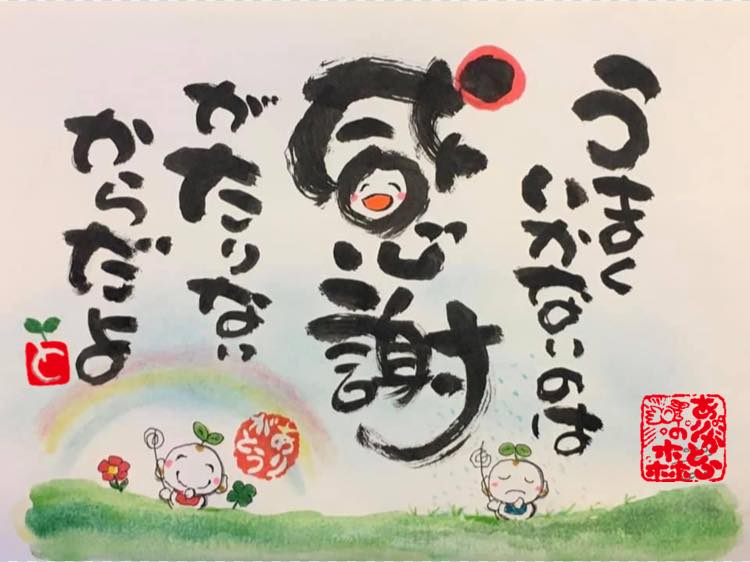 うまく
いかないのは
感謝
がたりない
からだよ
ありがとう
ありがとう
の森